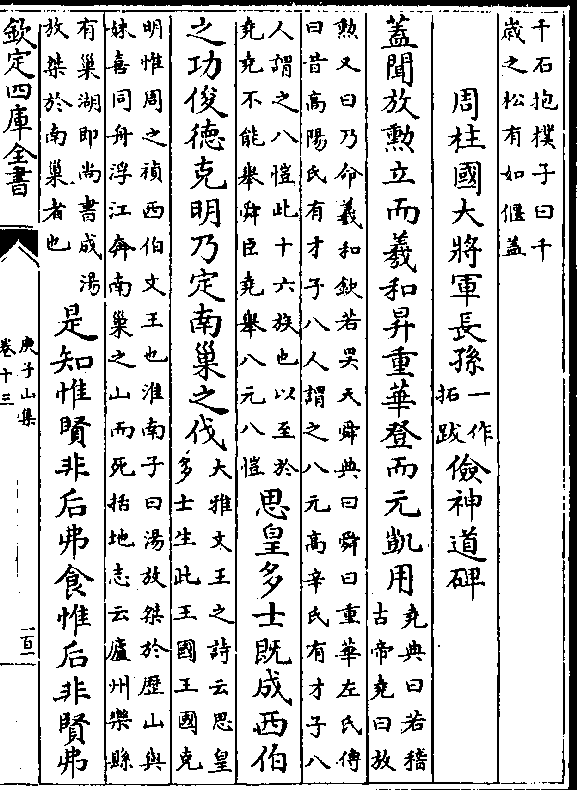 千石抱樸子曰千
歳之松有如偃蓋
周柱國大將軍長孫
一作
拓跋
儉神道碑
蓋聞放勲立而羲和昇重華登而元凱用
堯典曰若稽
古帝堯曰放
勲又曰乃命羲和欽若昊天舜典曰舜曰重華左氏傳
曰昔高陽氏有才子八人謂之八元高辛氏有才子八
人謂之八愷此十六族也以至於
堯堯不能舉舜臣堯舉八元八愷
思皇多士既成西伯
之功俊德克明乃定南巢之伐
大雅文王之詩云思皇
多士生此王國王國克
明惟周之禎西伯文王也淮南子曰湯放桀於歴山與
妹喜同舟浮江奔南巢之山而死括地志云廬州樂縣
有巢湖即尚書成湯
放桀於南巢者也
是知惟賢非后弗食惟后非賢弗
欽定四庫全書
庾子山集
卷十三